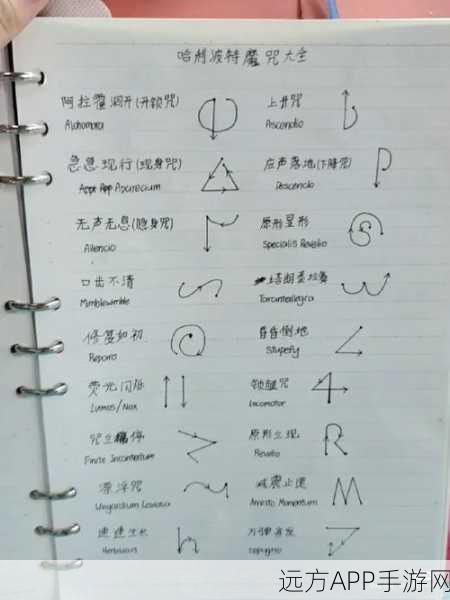 哈利波特魔咒大全
阿拉霍洞开(开锁咒)
Alohomora
上升咒
Ascendio
急急现行(现身咒)
Aparecium
应声落地(下降咒)
Descendo
无声无息(隐身咒)
Silencio
原形显形
Specialis Revelio
口齿不清
Mimblewimble
塔朗泰拉舞
Tarantallegra
修复如初
Reparo
昏昏倒地
Stupefy
荧光闪烁
Lumos/Nox
锁腿咒
Locomotor
咒立停
Finite Incantatum
原形立现
Revelio
漂浮咒
Wingardium Leviosa
减震止速
Arresto Momentum
速速生长
Herbivicus
万弹齐发
远方APP手游网